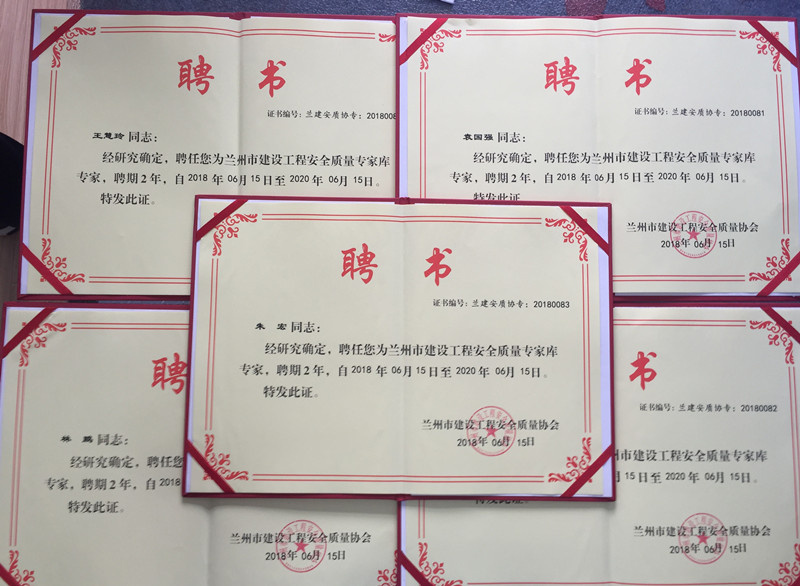 聘 书
证书编号：兰建安质协专：2018008
王慧玲 同志：
经研究确定，聘任您为兰州市建设工程安全质量专家库
专家，聘期2年，自2018年06月15日至2020年06月15日。
特发此证。
聘 书
证书编号：兰建安质协专：20180081
袁国强 同志：
经研究确定，聘任您为兰州市建设工程安全质量专家库
专家，聘期2年，自2018年06月15日至2020年06月15日。
特发此证。
兰州市建设工程安全质量协会
2018年06月15日
聘 书
证书编号：兰建安质协专：20180083
朱 宏 同志：
经研究确定，聘任您为兰州市建设工程安全质量专家库
专家，聘期2年，自2018年06月15日至2020年06月15日。
特发此证。
兰州市建设工程安全质量协会
2018年06月15日
聘
鹏 同志：
经研究确定，聘任您
专家，聘期2年，自2018
特发此证。
兰州市建设工程安全质量协会
2018年06月15日
书
证书编号：兰建安质协专：20180082
州市建设工程安全质量专家库
月15日至2020年06月15日。
兰州市建设工程安全质量协会
2018年06月15日